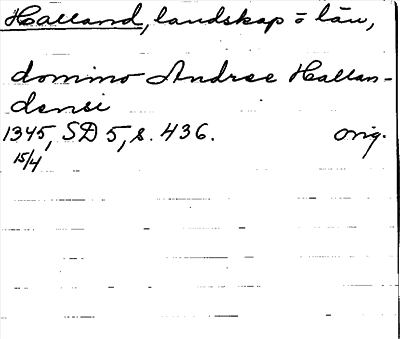 Halland, landskap o län,
domino Andree Hallan-
densi
1345, SD 5, s. 436. orig.
15/4